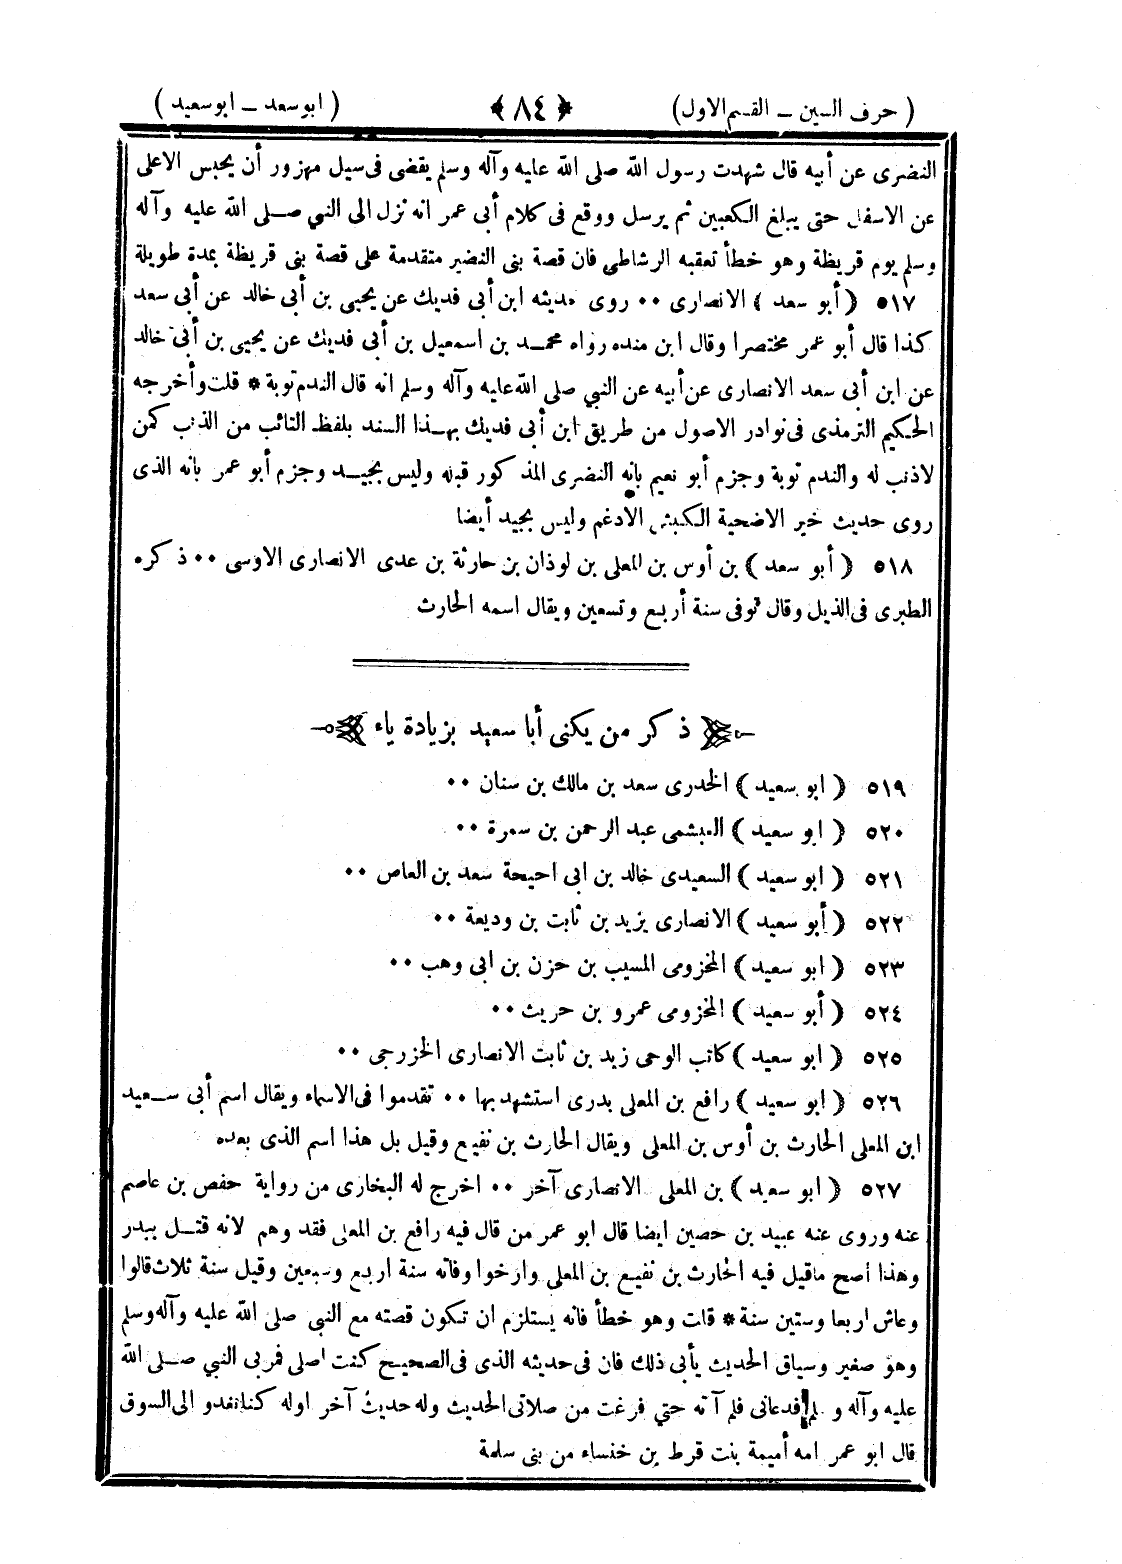 ( حرف السين ــ القسم الاول) ﴿ ٨٤ ﴾ ( ابو سعد ــ ابو سعيد )
النضرى عن أبيه قال شهدت رسول الله صلى الله عليه وآله وسلم يقضى فى سيل مهزور أن يحبس الاعلى
عن الاسفل حتى يبلغ الكعبين ثم يرسل ووقع فى كلام أبى عمر انه نزل الى النبي صلى الله عليه وآله
وسلم يوم قريظة وهو خطأ تعقبه الرشاطى فان قصة بنى النضير متقدمة على قصة بنى قريظة بمدة طويلة
٥١٧ ( أبو سعد ) الانصارى ٠٠ روى حديثه ابن أبى فديك عن يحيى بن أبى خالد عن أبى سعد
كذا قال أبو عمر مختصرا وقال ابن منده رواه محمد بن اسمعيل بن أبى فديك عن يحيى بن أبى خالد
عن ابن أبى سعد الانصارى عن أبيه عن النبي صلى الله عليه وآله وسلم انه قال الندم توبة * قلت وأخرجه
الحكيم الترمذى فى نوادر الاصول من طريق ابن أبى فديك بهذا السند بلفظ التائب من الذنب كمن
لاذنب له والندم توبة وجزم أبو نعيم بانه النضرى المذكور قبله وليس بجيد وجزم أبو عمر بانه الذى
روى حديث خير الاضحية الكبش الادغم وليس بجيد أيضا
٥١٨ ( أبو سعد ) بن أوس بن المعلى بن لوذان بن حارثة بن عدى الانصارى الاوسى ٠٠ ذكره
الطبرى فى الذيل وقال توفى سنة أربع وتسعين ويقال اسمه الحارث
ذكر من يكنى أبا سعيد بزيادة ياء
٥١٩ ( ابو سعيد ) الخدرى سعد بن مالك بن سنان ٠٠
٥٢٠ ( ابو سعيد ) العبشمى عبد الرحمن بن سمرة ٠٠
٥٢١ ( ابو سعيد ) السعيدى خالد بن ابى احيحة سعد بن العاص ٠٠
٥٢٢ ( أبو سعيد ) الانصارى يزيد بن ثابت بن وديعة ٠٠
٥٢٣ ( ابو سعيد ) المخزومى المسيب بن حزن بن ابى وهب ٠٠
٥٢٤ ( أبو سعيد ) المخزومى عمرو بن حريث ٠٠
٥٢٥ ( ابو سعيد ) كاتب الوحى زيد بن ثابت الانصارى الخزرجى ٠٠
٥٢٦ ( ابو سعيد ) رافع بن المعلى بدرى استشهد بها ٠٠ تقدموا فى الاسماء ويقال اسم أبى سعيد
ابن المعلى الحارث بن أوس بن المعلى ويقال الحارث بن نفيع وقيل بل هذا اسم الذى بعده
٥٢٧ ( ابو سعيد ) بن المعلى الانصارى آخر ٠٠ اخرج له البخارى من رواية حفص بن عاصم
عنه وروى عنه عبيد بن حصين ايضا قال ابو عمر من قال فيه رافع بن المعلى فقد وهم لانه قتل ببدر
وهذا اصح ماقيل فيه الحارث بن نفيع بن المعلى وارخوا وفاته سنة اربع وسبعين وقيل سنة ثلاث قالوا
وعاش اربعا وستين سنة * قلت وهو خطأ فانه يستلزم ان تكون قصته مع النبى صلى الله عليه وآله وسلم
وهو صغير وسياق الحديث يأبى ذلك فان فى حديثه الذى فى الصحيح كنت اصلى فمر بى النبي صلى الله
عليه وآله وسلم فدعانى فلم آته حتي فرغت من صلاتى الحديث وله حديث آخر اوله كنا نغدو الى السوق
قال ابو عمر امه أميمة بنت قرط بن خنساء من بنى سلمة